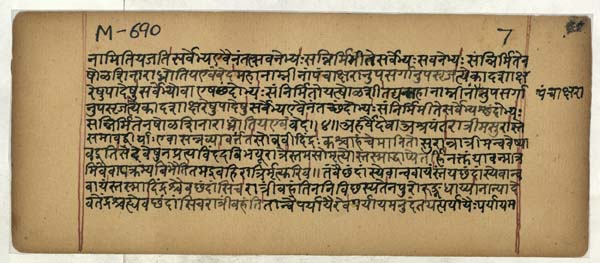 M-690
7
नामितियजतिसर्वेभ्यएवैनंतत्सवनेभ्यःसन्निर्मिमीतेसर्वेभ्यःसवनेभ्यःसंन्निर्मितेन
षोळशिनाराध्नोतियएवंवेदमहानाम्नीनांपंचाक्षरानुपसर्गानुपसृजत्येकादशाक्ष
रेषुपादेषुसर्वेभ्योवाएषछंदोभ्यःसंनिर्मितोयत्षोळशीतद्यन्महानाम्नीनां पंचाक्षरा
नुपसर्गानुपसृजत्येकादशाक्षरेषुपादेषुसर्वेभ्यएवैनंतच्छंदोभ्यःसंनिर्मिमीतेसर्वेभ्यश्छंदोभ्यः
सन्निर्मितेनषोळशिनाराध्नोतियएवंवेद॥४॥अहर्वैदेवाअश्रयंतरात्रीमसुरास्ते
समावद्वीर्याएवासन्नव्यावर्तंतसोब्रवीदिंद्रःकश्चाहंचेमानितोसुरान्रात्रीमन्ववेष्या
वइतिसदेवेषुनप्रत्यविंददबिभयूरात्रेस्तमसोमृत्योस्तस्माद्धाप्येतर्हिनक्तंयावन्मात्र
मिवैवापक्रम्यबिभेतितमइवहिरात्रिर्मृत्युरिव॥तंवैछंदांस्येवान्ववायंस्तंयच्छंदांस्येवान्व
वायंस्तस्मादिंद्रश्चैवछंदांसिचरात्रींवहंतिननिविच्छस्यतेनपुरोरुङ्नधाय्यानान्यादे
वतेंद्रश्चह्येवछंदांसिचरात्रींवहंतितान्वैपर्यायैरेवपर्यायमनुदंतयत्पर्यायैःपर्यायम